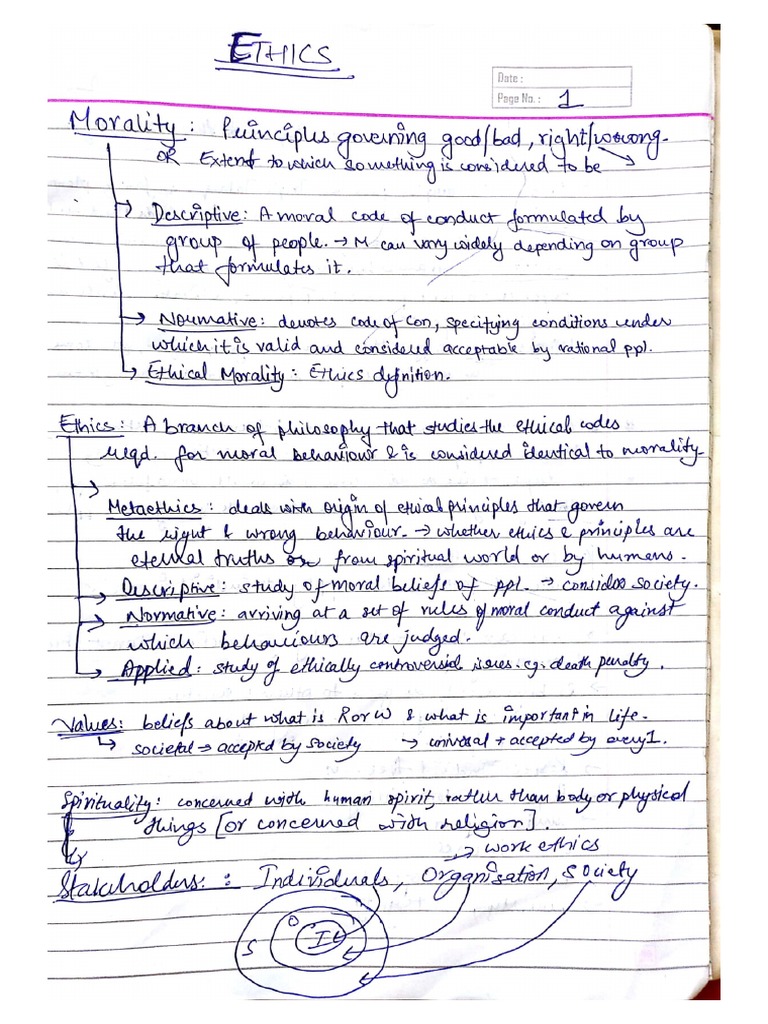 ETHICS
Date :
Page No. : 1
Morality : Principles governing good/bad, right/wrong.
OR Extent to which something is considered to be
Descriptive: A moral code of conduct formulated by
group of people. → M can vary widely depending on group
that formulates it.
Normative: denotes code of con, specifying conditions under
which it is valid and considered acceptable by rational ppl.
Ethical Morality: Ethics definition.
Ethics: A branch of philosophy that studies the ethical codes
reqd. for moral behaviour & is considered identical to morality
Metaethics: deals with origin of ethical principles that govern
the right & wrong behaviour. → whether ethics & principles are
eternal truths or from spiritual world or by humans.
Descriptive: study of moral beliefs of ppl. → considers society.
Normative: arriving at a set of rules of moral conduct against
which behaviours are judged.
Applied: study of ethically controversial issues. eg. death penalty.
Values: beliefs about what is R or W & what is important in life.
societal → accepted by society → universal → accepted by every1.
Spirituality: concerned with human spirit, rather than body or physical
things [or concerned with religion].
→ work ethics
Stakeholders: : Individuals, Organisation, Society
S O I